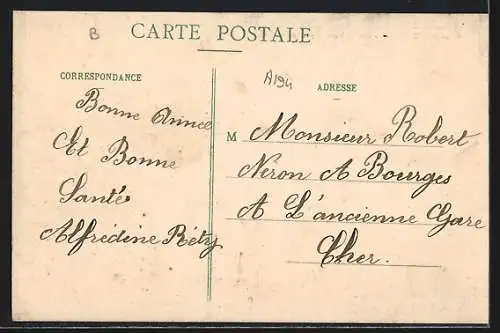 B
CARTE POSTALE
CORRESPONDANCE
A194
ADRESSE
Bonne Année
Et Bonne
Santé
Alfredine Réty
M Monsieur Robert
Neron A Bourges
A L'ancienne Gare
Cher.